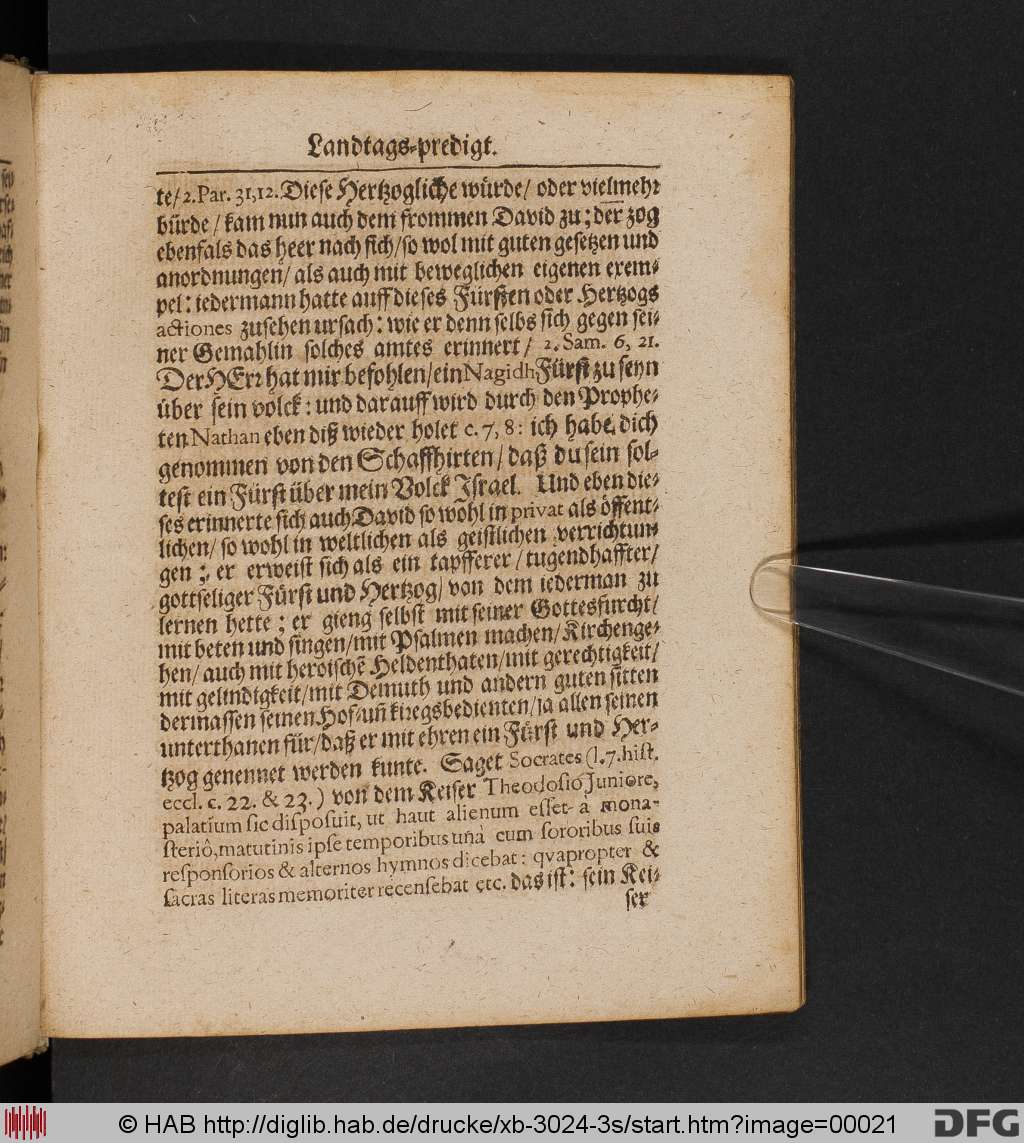 Landtags-predigt.
te/ 2. Par. 31, 12. Diese Hertzogliche würde/ oder vielmehr
bürde/ kam nun auch dem frommen David zu; der zog
ebenfals das heer nach sich/ so wol mit guten gesetzen und
anordnungen/ als auch mit beweglichen eigenen exem-
pel: iedermann hatte auff dieses Fürsten oder Hertzogs
actiones zusehen ursach: wie er denn selbs sich gegen sei-
ner Gemahlin solches amtes erinnert/ 2. Sam. 6, 21.
Der HErr hat mir befohlen/ ein Nagidh Fürst zu seyn
über sein volck: und darauff wird durch den Prophe-
ten Nathan eben diß wieder holet c. 7, 8: ich habe dich
genommen von den Schaffhirten/ daß du sein sol-
test ein Fürst über mein Volck Israel. Und eben die-
ses erinnerte sich auch David so wohl in privat als öffent-
lichen/ so wohl in weltlichen als geistlichen verrichtun-
gen; er erweist sich als ein tapfferer/ tugendhaffter/
gottseliger Fürst und Hertzog/ von dem iederman zu
lernen hette; er gieng selbst mit seiner Gottesfurcht/
mit beten und singen/ mit Psalmen machen/ Kirchenge-
hen/ auch mit heroischē Heldenthaten/ mit gerechtigkeit/
mit gelindigkeit/ mit Demuth und andern guten sitten
dermassen seinen Hof-uñ kriegsbedienten/ ja allen seinen
unterthanen für/ daß er mit ehren ein Fürst und Her-
tzog genennet werden kunte. Saget Socrates (l. 7. hist.
eccl. c. 22. & 23.) von dem Keiser Theodosio Juniore,
palatium sic disposuit, ut haut alienum esset a mona-
steriô, matutinis ipse temporibus unà cum sororibus suis
responsorios & alternos hymnos dicebat: qvapropter &
sacras literas memoriter recensebat etc. das ist: sein Kei-
ser
© HAB http://diglib.hab.de/drucke/xb-3024-3s/start.htm?image=00021
DFG